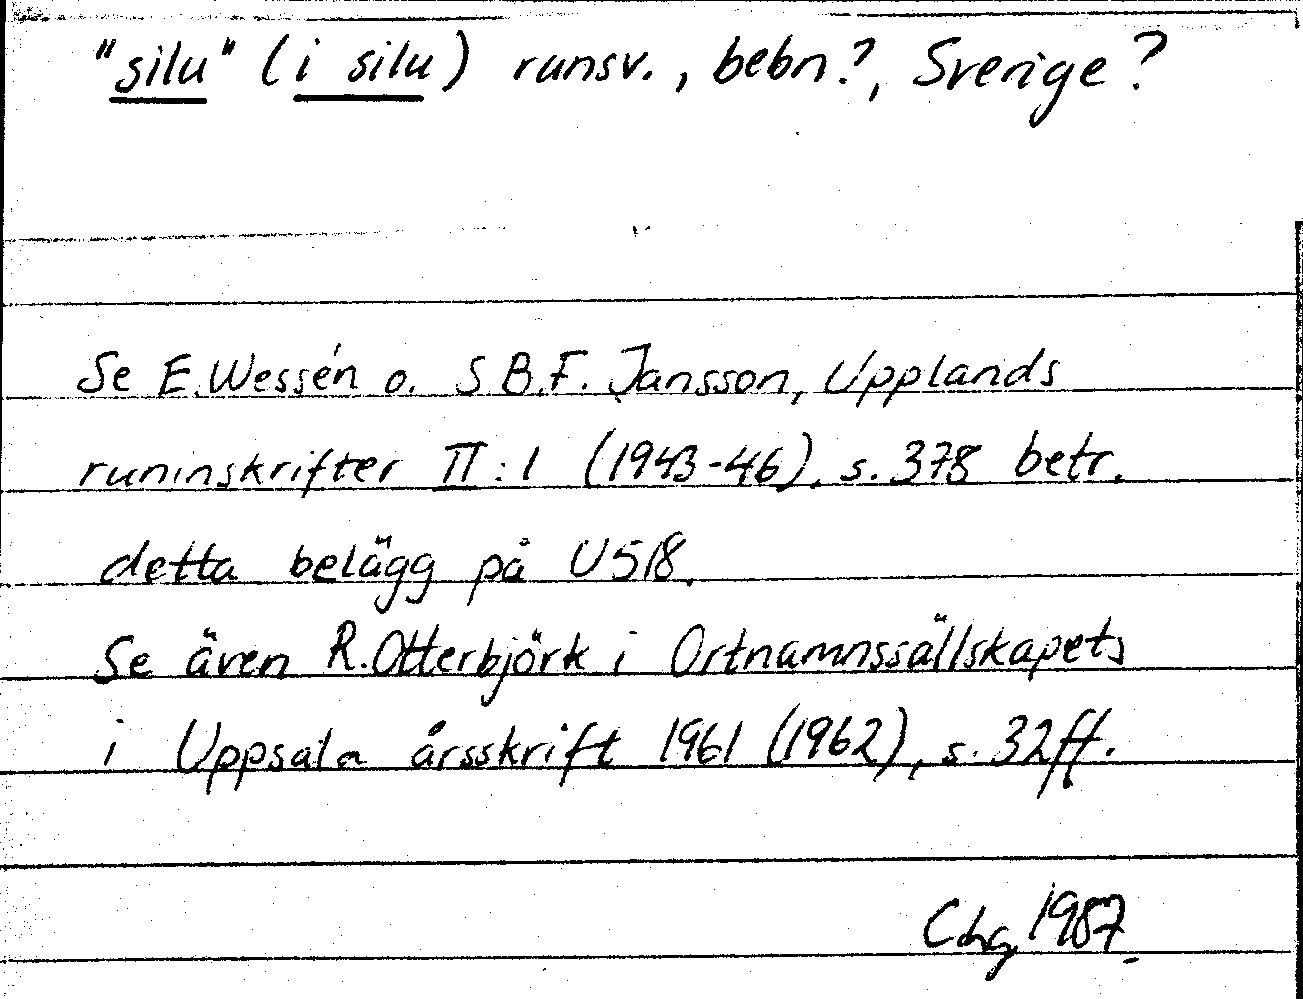 "silu" (i silu) runsv., bebn.?, Sverige?
Se E.Wessén o. S.B.F. Jansson, Upplands
runinskrifter II:1 (1943-46), s. 378 betr.
detta belägg på U518.
Se även R.Otterbjörk i Ortnamnssällskapets
i Uppsala årsskrift 1961 (1962), s. 32ff.
1987